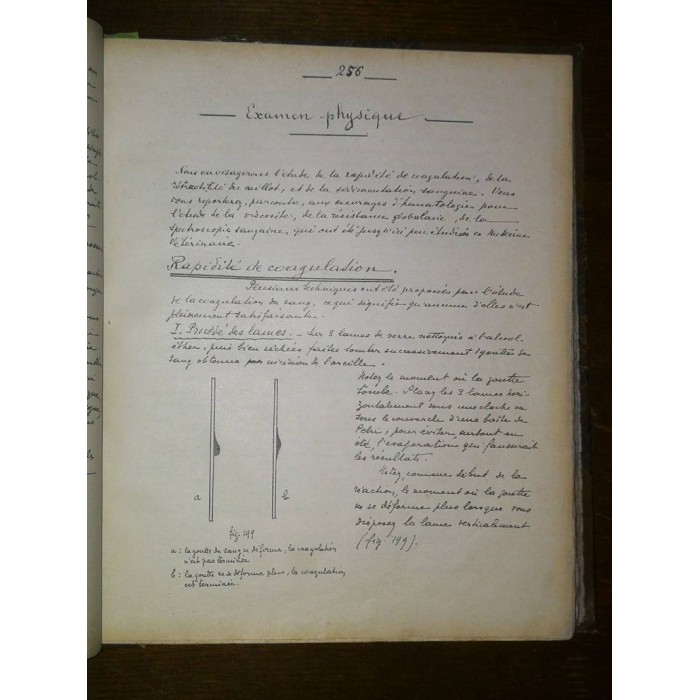 256
Examen physique
Nous envisagerons l'étude de la rapidité de coagulation, de la
rétractilité du caillot, et de la sédimentation sanguine. Vous
vous reporterez, par contre, aux ouvrages d'hématologie pour
l'étude de la viscosité, de la résistance globulaire, de la
spectroscopie sanguine, qui ont été jusqu'ici peu étudiées en Médecine
Vétérinaire.
Rapidité de coagulation.
Plusieurs techniques ont été proposées pour l'étude
de la coagulation du sang, ce qui signifie qu'aucune d'elles n'est
pleinement satisfaisante.
I. Procédé des lames. - Sur 3 lames de verre nettoyées à l'alcool-
éther, puis bien séchées faites tomber successivement 1 goutte de
sang obtenue par incision de l'oreille.
Notez le moment où la goutte
tombe. Placez les 3 lames hori-
zontalement sous une cloche ou
sous le couvercle d'une boîte de
Petri, pour éviter, surtout en
été, l'évaporation qui fausserait
les résultats.
Notez, comme début de la
réaction, le moment où la goutte
ne se déforme plus lorsque vous
disposez la lame verticalement
(fig. 199).
a
b
fig. 199
a : la goutte de sang se déforme, la coagulation
n'est pas terminée
b : la goutte ne se déforme plus, la coagulation
est terminée.